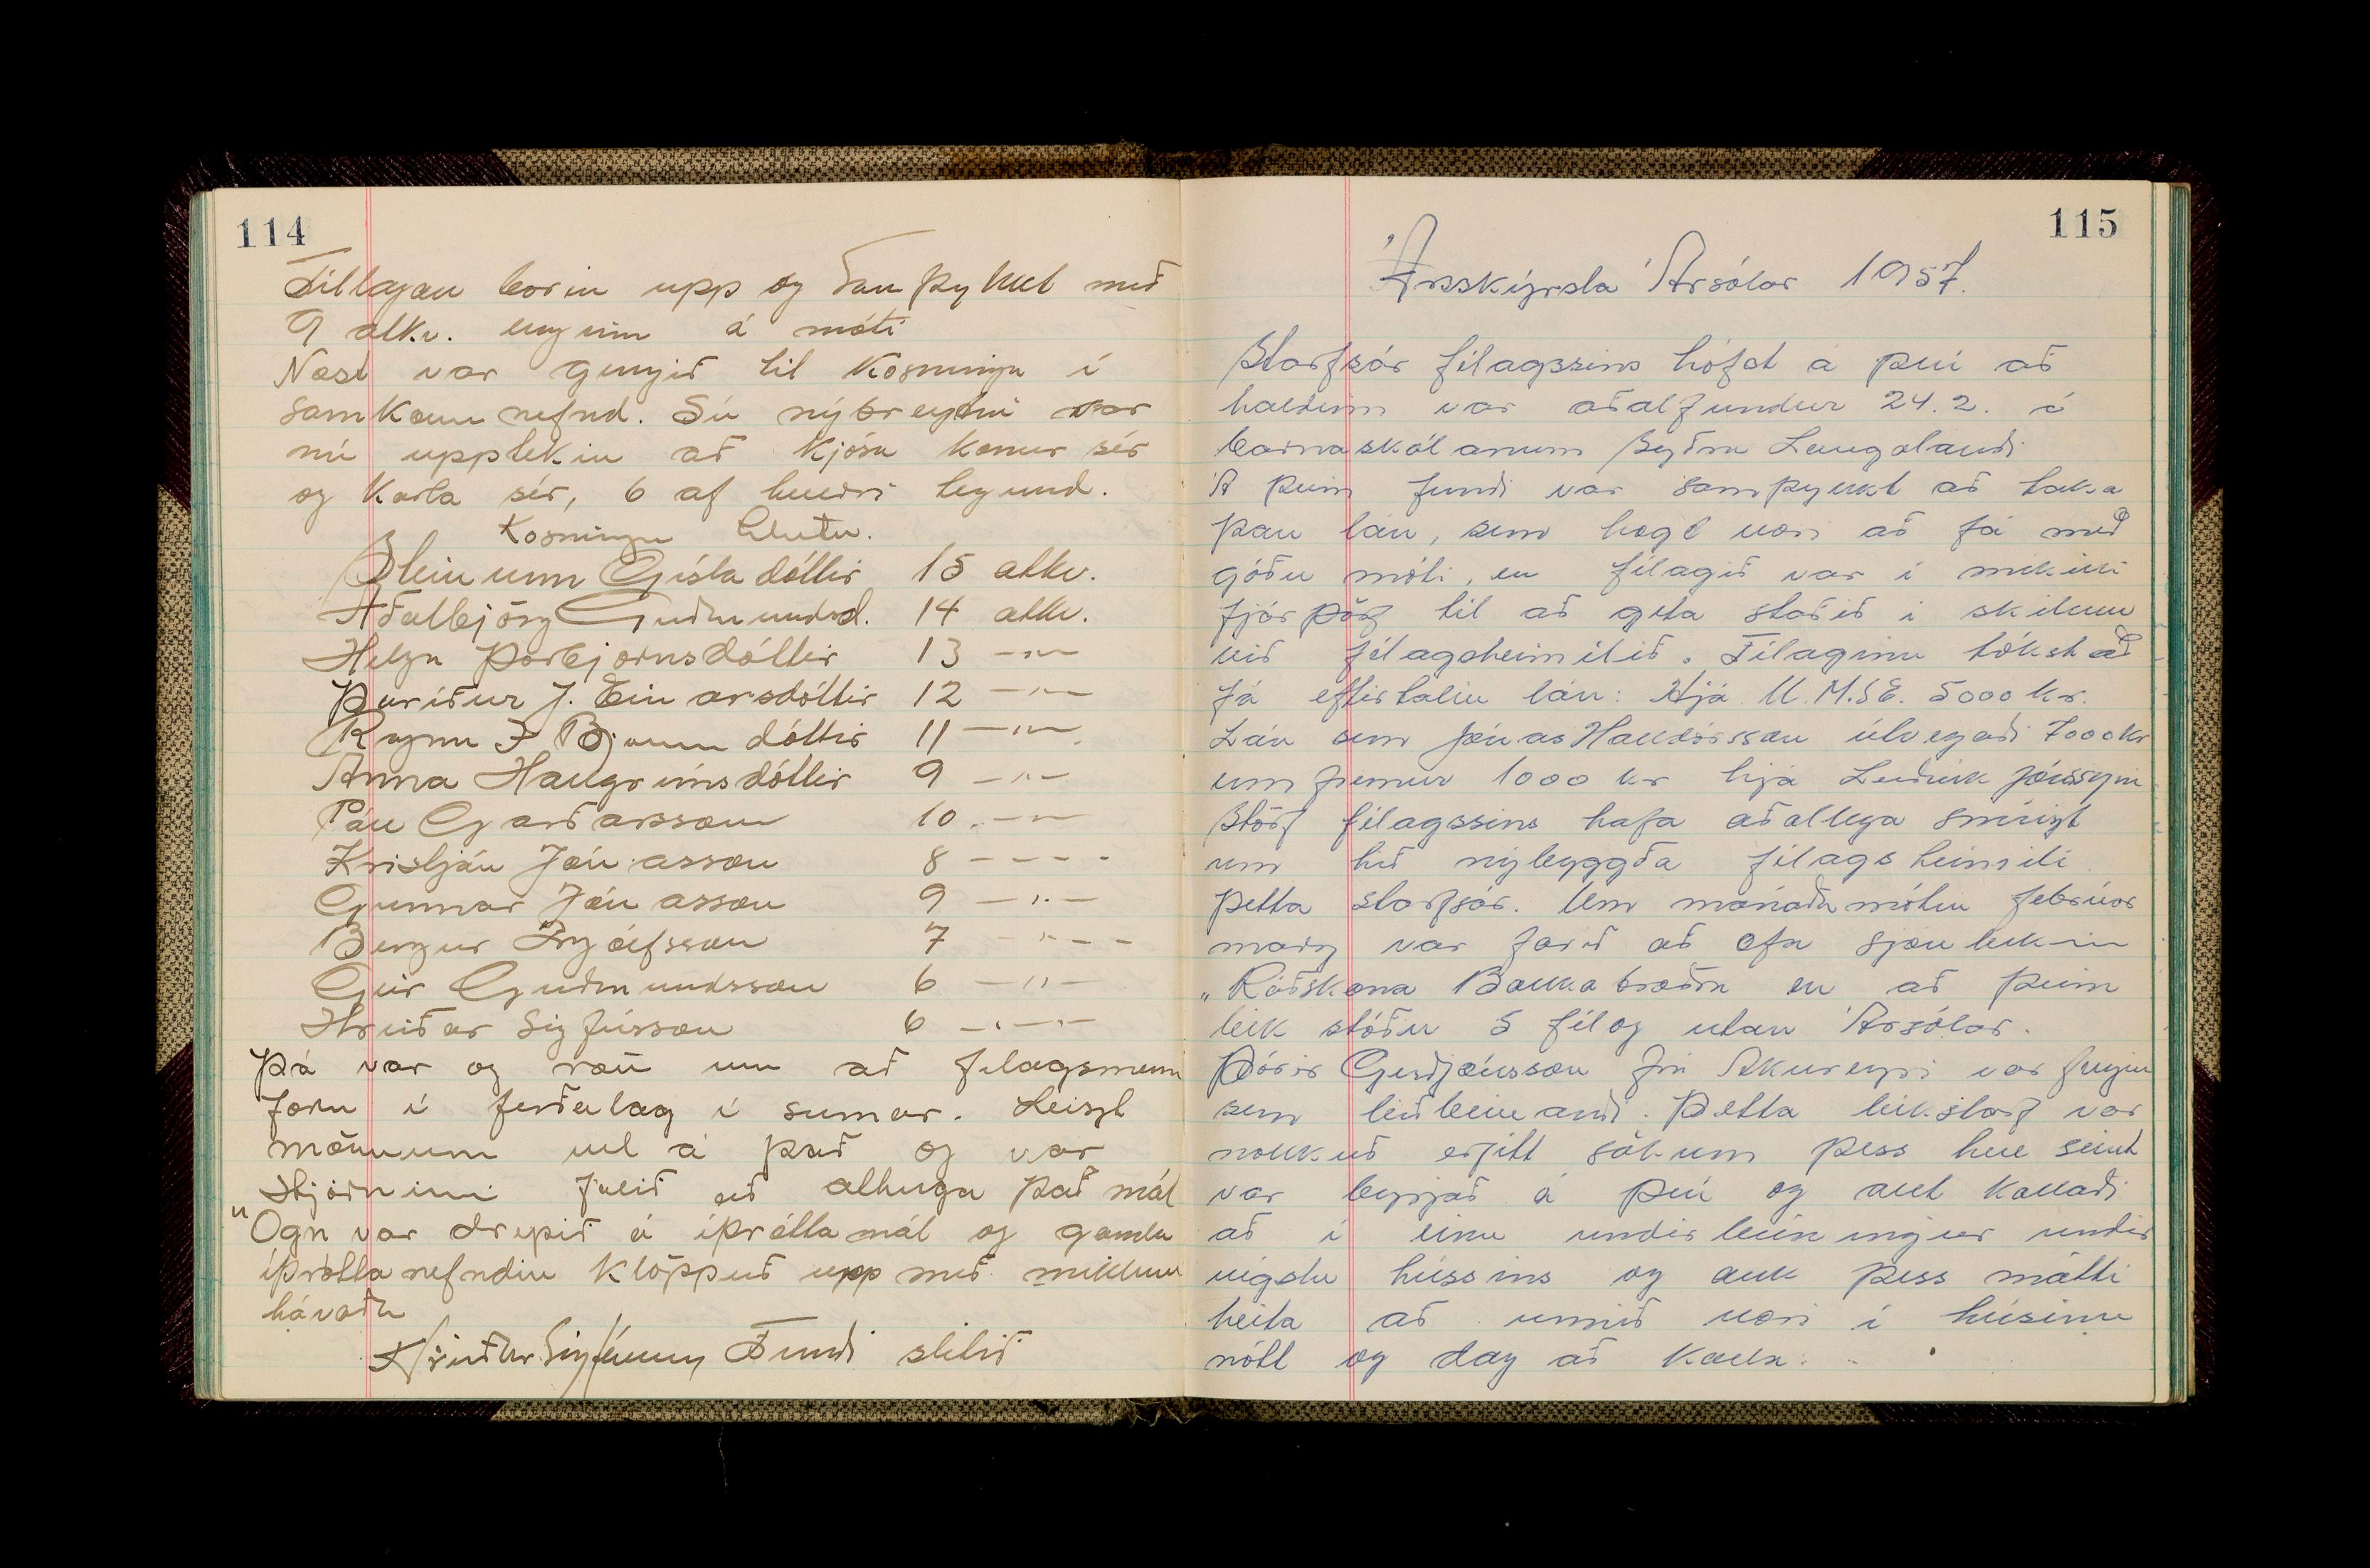 114
Tillagan borin upp og Samþykkt með
9 atkv. enginn á móti
Næst var gengið til kosninga í
samkomunefnd. Sú nýbreytni var
nú upptekin að kjósa konur sér
og karla sér, 6 af hvorri tegund.
Kosningu hlutu.
Steinunn Gísladóttir 15 atkv.
Aðalbjörg Guðmundsd. 14 atkv.
Helga Þorbjornsdóttir 13 — „ —
Þuríður J. Einarsdóttir 12 — „ —
Ragna F Bjarnadóttir 11 — „ —
Anna Hallgrímsdóttir 9 — „ —
Páll Garðarsson 10 — „ —
Kristján Jónasson 8 — — — -
Gunnar Jónasson 9 — „ —
Bergur Ingólfsson 7 — „ — —
Geir Guðmundsson 6 — „ —
Hreiðar Sigfússon 6 — „ —
Þá var og rætt um að félagsmenn
færu í ferðalag í sumar. Leizt
mönnum vel á það og var
Stjórninni falið að athuga það mál
"Ögn var drepið á íþróttamál og gamla
íþróttanefndin klöppuð upp með miklum
hávaða
Hreiðar Sigfússon Fundi slitið
115
Ársskýrsla Ársólar 1957.
Starfsár félagssins hófst á því að
haldinn var aðalfundur 24.2. í
barnaskólanum Syðra Laugalandi
Á þeim fundi var samþykkt að taka
þau lán, sem hægt væri að fá með
góðu móti, en félagið var í mikilli
fjárþörf til að geta staðið í skilum
við félagsheimilið. Félaginu tókst að
fá eftirtalin lán: Hjá U.M.S.E. 5000 kr.
Lán sem Jónas Halldórsson útvegaði 7000 kr
ennfremur 1000 kr hjá Leðurik Jónssyni
Störf félagssins hafa aðallega snúizt
um hið nýbyggða félagsheimili
þetta starfsár. Um mánaðamótin febrúar
marz var farið að æfa sjónleikinn
„Ráðskona Bakkabræðra en að þeim
leik stóðu 5 félög utan Ársólar.
Þórir Guðjónsson frá Akureyri var fenginn
sem leiðbeinandi. Þetta leikstarf var
nokkuð erfitt sökum þess hve seint
var byrjað á því og allt kallaði
að í einu undirbúningur undir
vígslu hússins og auk þess mátti
heita að unnið væri í húsinu
nótt og dag að kalla.